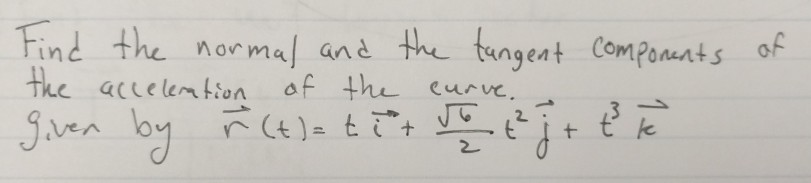 Find the normal and the tangent components of
the acceleration of the curve.
given by $\vec{r}(t) = t\vec{i} + \frac{\sqrt{6}}{2}t^2\vec{j} + t^3\vec{k}$